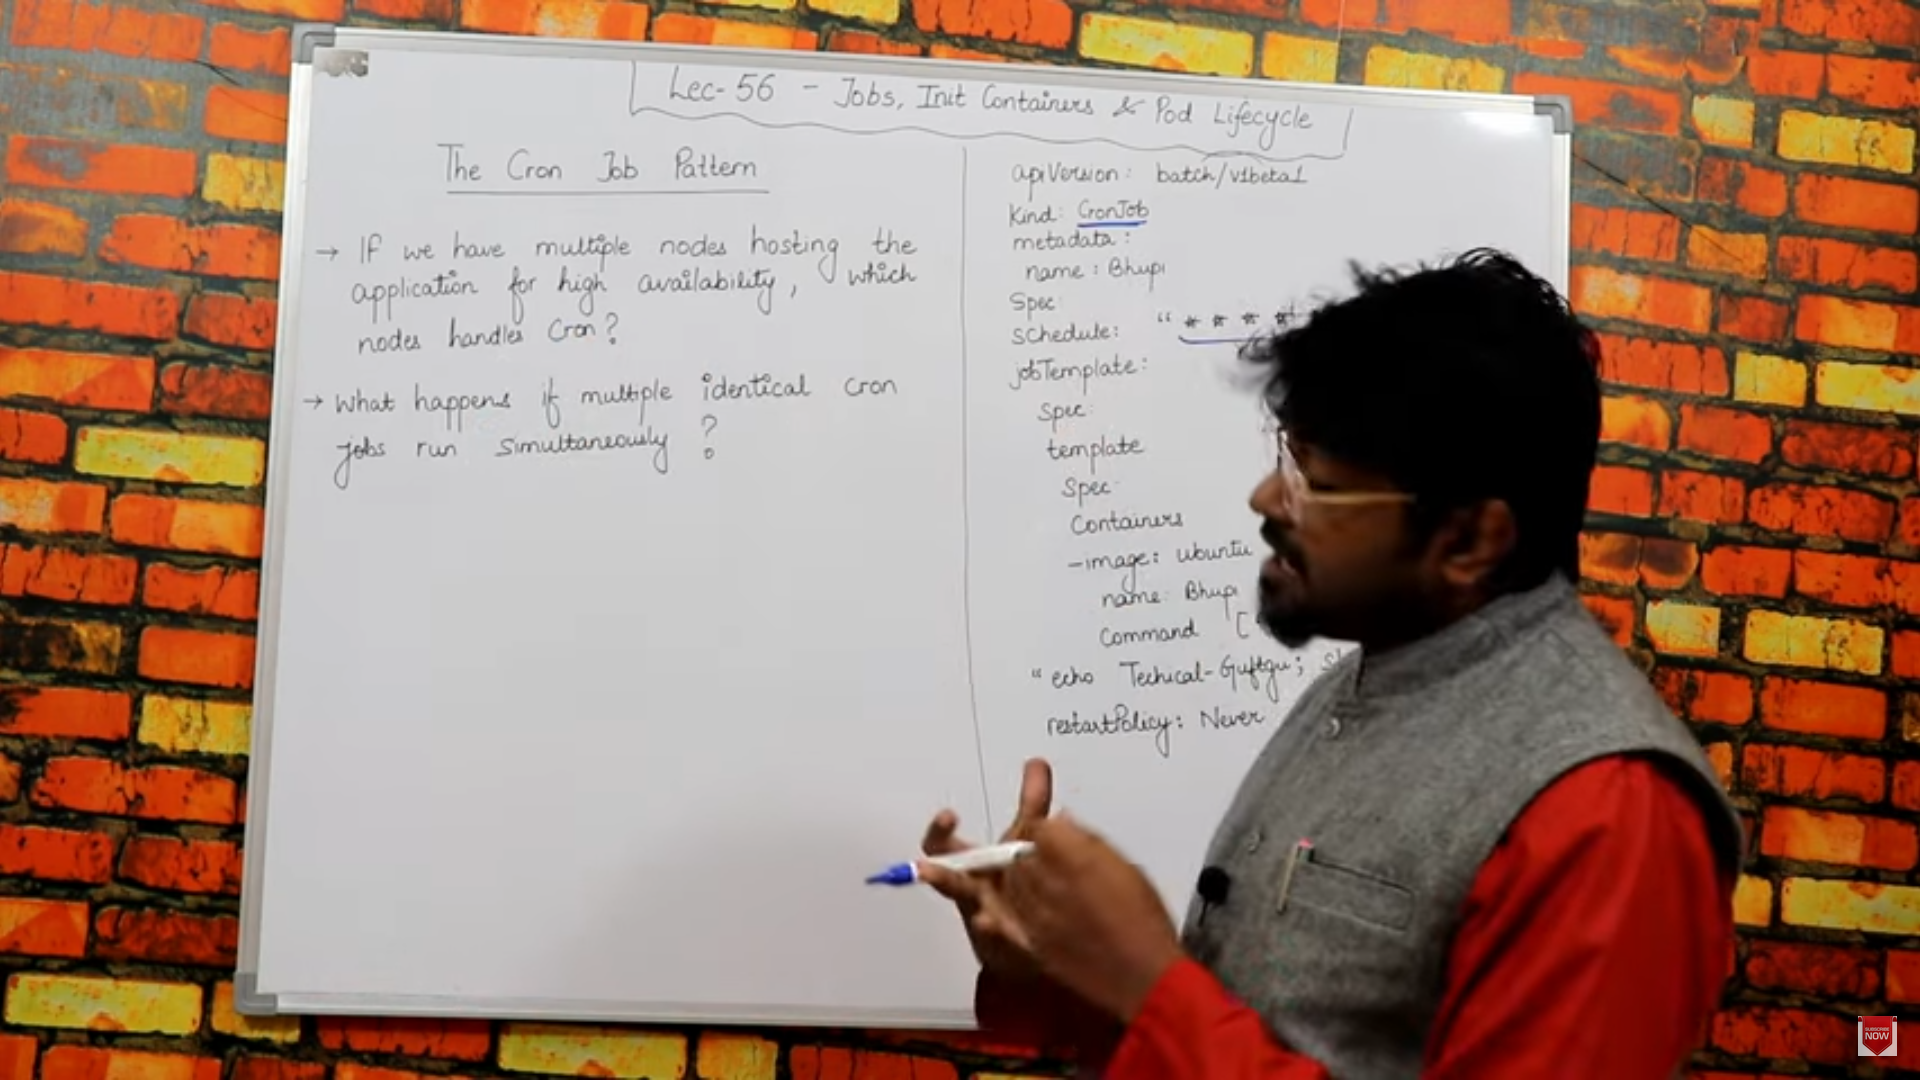 Lec-56 - Jobs, Init Containers & Pod Lifecycle
The Cron Job Pattern
→ If we have multiple nodes hosting the
application for high availability, which
nodes handles Cron?
→ What happens if multiple identical cron
jobs run simultaneously ?
apiVersion: batch/v1beta1
Kind: CronJob
metadata:
name: Bhupi
Spec
schedule: "* * * *
jobTemplate:
Spec:
template
Spec
Containers
-image: ubuntu
name: Bhupi
Command [
"echo Techical-Guftgu;
restartPolicy: Never
SUBSCRIBE
NOW